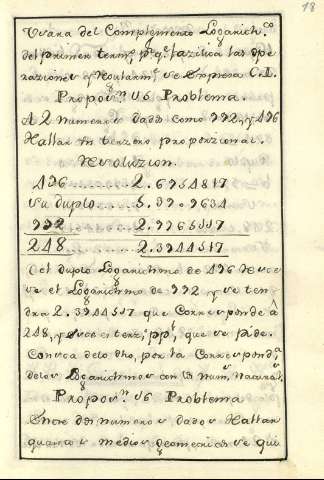 18
Usará del Complemento Logarich.co
del primer term.o p.a q.e fazilita las ope
raziones y regularm.te se Empresa C. L.
Propos.n 56 Problema.
A 2 numeros dados como 992, y 496
Hallar un terzero proporzional.
Resoluzion.
496........2.6954817
su duplo....5.3909634
992........2.9965117
248........2.3944517
del duplo Logarithmo de 496
se el Logarithmo de 992 y se ten
dra 2.3944517 que Corresponde â
248, y que se pide.
Consta delo dho, por la Correspond.a
delos Logarithmos con los num.s natural.s
Propos.n 56 Problema
Entre dos numeros dados Hallar
quantos medios geometricos se qui